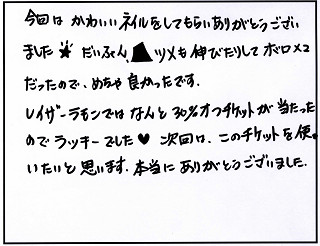 今回は かわいいネイルをしてもらいありがとうござい
ました だいぶん、ツメも伸びたりして ボロ×2
だったので、めちゃ良かったです。
レイザーラモンでは なんと 30%オフチケットが当たった
のでラッキーでした♥ 次回は、このチケットを使
いたいと思います。本当に ありがとうございました。